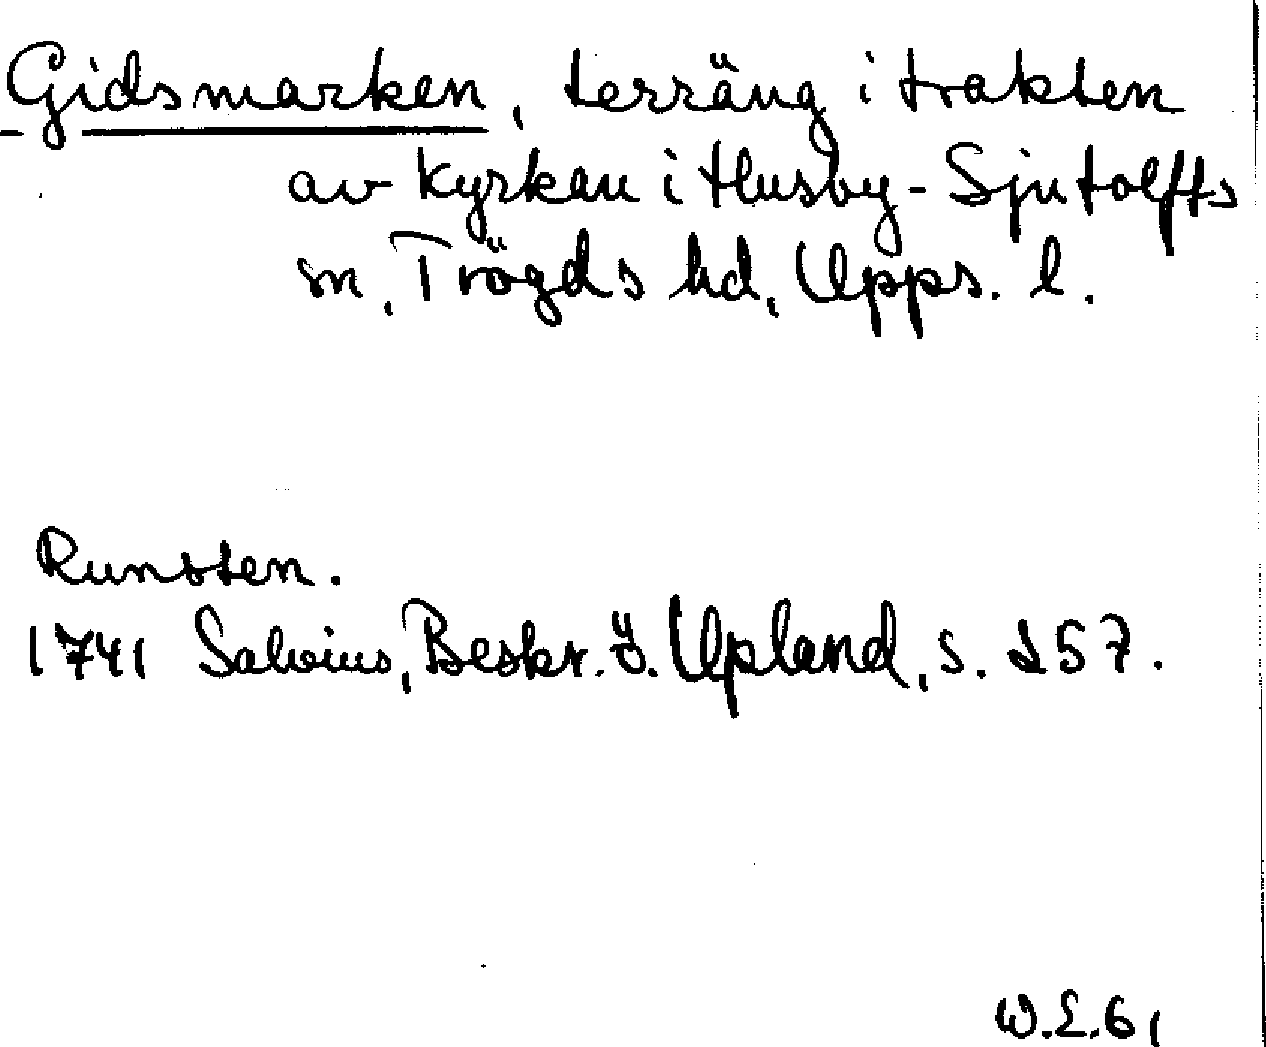 Gidsmarken, terräng i trakten
av kyrkan i Husby-Sjutolfts
sn, Trögds hd, Upps. l.
Runsten.
1741 Salvius, Beskr. ö. Upland, s. 257.
W.E.61